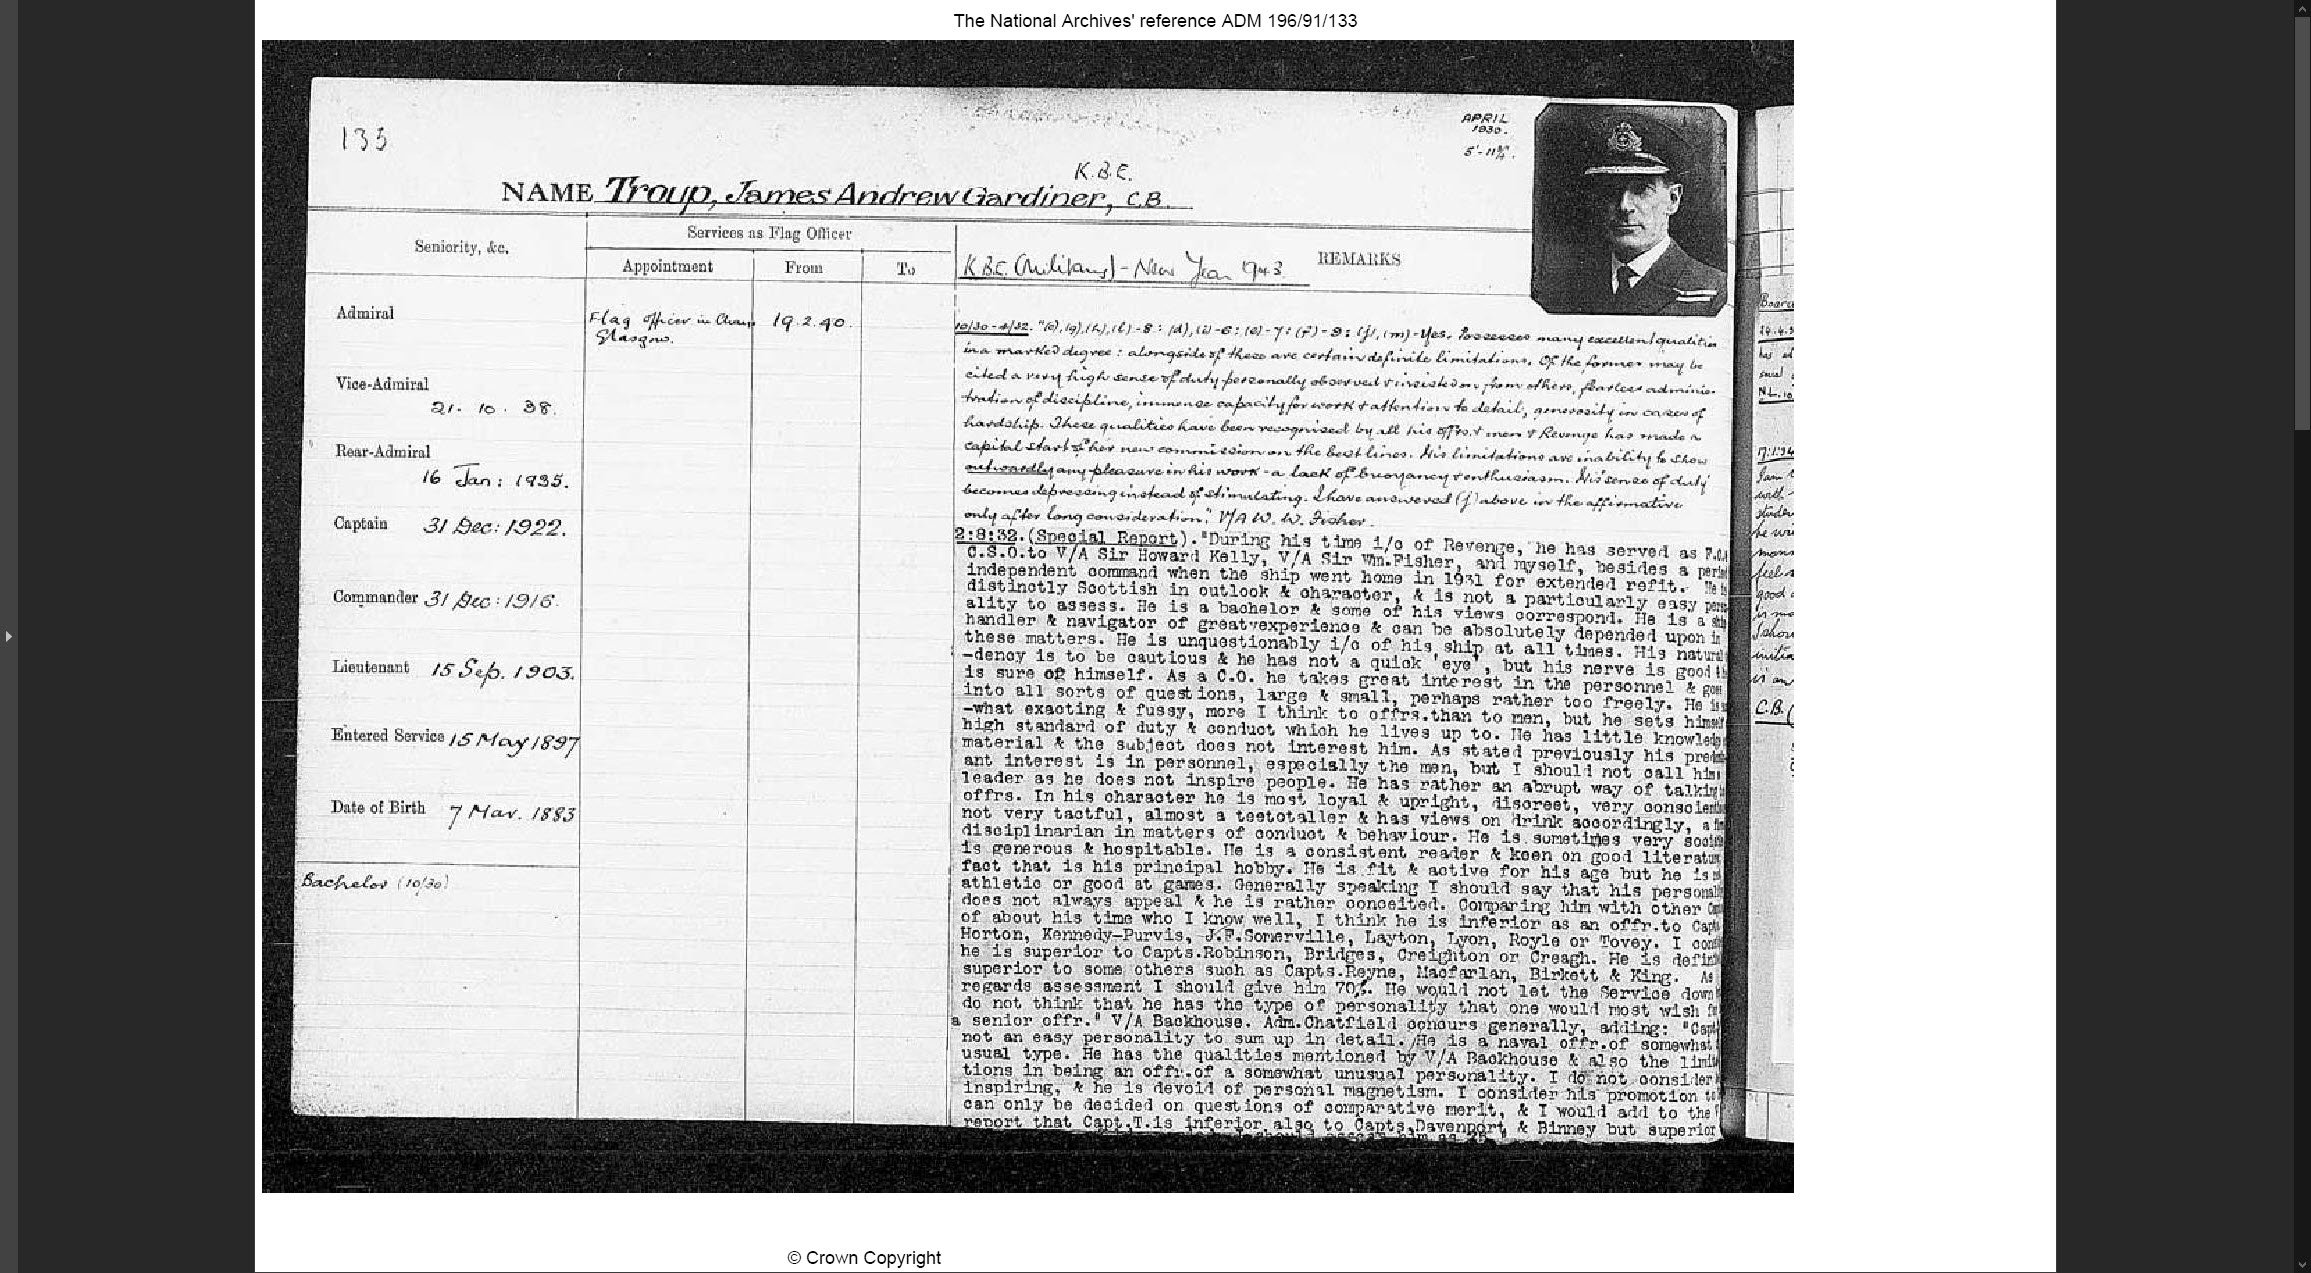 The National Archives' reference ADM 196/91/133
133
APRIL
1930.
5'-11¾".
K.B.E.
NAME Troup, James Andrew Gardiner, C.B.
Seniority, &c.
Services as Flag Officer
Appointment From To
K.B.E. (Military) - New Year 1943
REMARKS
Admiral
Flag Officer in Charge 19.2.40.
Glasgow.
Vice-Admiral
21. 10. 38.
Rear-Admiral
16 Jan: 1935.
Captain 31 Dec: 1922.
Commander 31 Dec: 1916.
Lieutenant 15 Sep. 1903.
Entered Service 15 May 1897
Date of Birth 7 Mar. 1883
Bachelor (10/30)
Yes. Possesses many excellent qualities
in a marked degree: alongside of these are certain definite limitations. Of the former may be
cited a very high sense of duty personally observed & insisted on from others, fearless adminis-
tration of discipline, immense capacity for work & attention to detail, generosity in cases of
hardship. These qualities have been recognised by all his offrs. & men & Revenge has made a
capital start of her new commission on the best lines. His limitations are inability to show
outwardly any pleasure in his work - a lack of buoyancy & enthusiasm. His sense of duty
becomes depressing instead of stimulating. I have answered (j) above in the affirmative
only after long consideration." V/A W. W. Fisher.
2:8:32.(Special Report)."During his time i/c of Revenge, he has served as F.C.
C.S.O.to V/A Sir Howard Kelly, V/A Sir Wm.Fisher, and myself, besides a peri
independent command when the ship went home in 1931 for extended refit. He i
distinctly Scottish in outlook & character, & is not a particularly easy pers
ality to assess. He is a bachelor & some of his views correspond. He is a sh
handler & navigator of great experience & can be absolutely depended upon i
these matters. He is unquestionably i/c of his ship at all times. His natura
-dency is to be cautious & he has not a quick 'eye', but his nerve is good
is sure of himself. As a C.O. he takes great interest in the personnel & goe
into all sorts of questions, large & small, perhaps rather too freely. He is
-what exacting & fussy, more I think to offrs.than to men, but he sets himse
high standard of duty & conduct which he lives up to. He has little knowled
material & the subject does not interest him. As stated previously his pred
ant interest is in personnel, especially the men, but I should not call him
leader as he does not inspire people. He has rather an abrupt way of talkin
offrs. In his character he is most loyal & upright, discreet, very conscien
not very tactful, almost a teetotaller & has views on drink accordingly, a
disciplinarian in matters of conduct & behaviour. He is sometimes very soci
is generous & hospitable. He is a consistent reader & keen on good literatu
fact that is his principal hobby. He is fit & active for his age but he is
athletic or good at games. Generally speaking I should say that his personal
does not always appeal & he is rather conceited. Comparing him with other
of about his time who I know well, I think he is inferior as an offr.to Capt
Horton, Kennedy-Purvis, J.F.Somerville, Layton, Lyon, Royle or Tovey. I con
he is superior to Capts.Robinson, Bridges, Creighton or Creagh. He is defin
superior to some others such as Capts.Reyne, Macfarlan, Birkett & King. As
regards assessment I should give him 70%. He would not let the Service down
do not think that he has the type of personality that one would most wish f
a senior offr." V/A Backhouse. Adm.Chatfield concurs generally, adding: "Capt
not an easy personality to sum up in detail. He is a naval offr.of somewhat
usual type. He has the qualities mentioned by V/A Backhouse & also the limit
tions in being an offr.of a somewhat unusual personality. I do not consider
inspiring, & he is devoid of personal magnetism. I consider his promotion t
can only be decided on questions of comparative merit, & I would add to the
report that Capt.T.is inferior also to Capts.Davenport, & Binney but superior
C.B.
© Crown Copyright